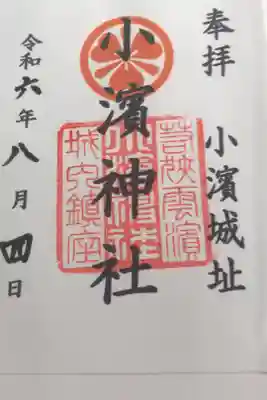 奉拝
小濱城址
小濱神社
若狹雲濱
小濱神社
城内鎮座
令和六年八月四日